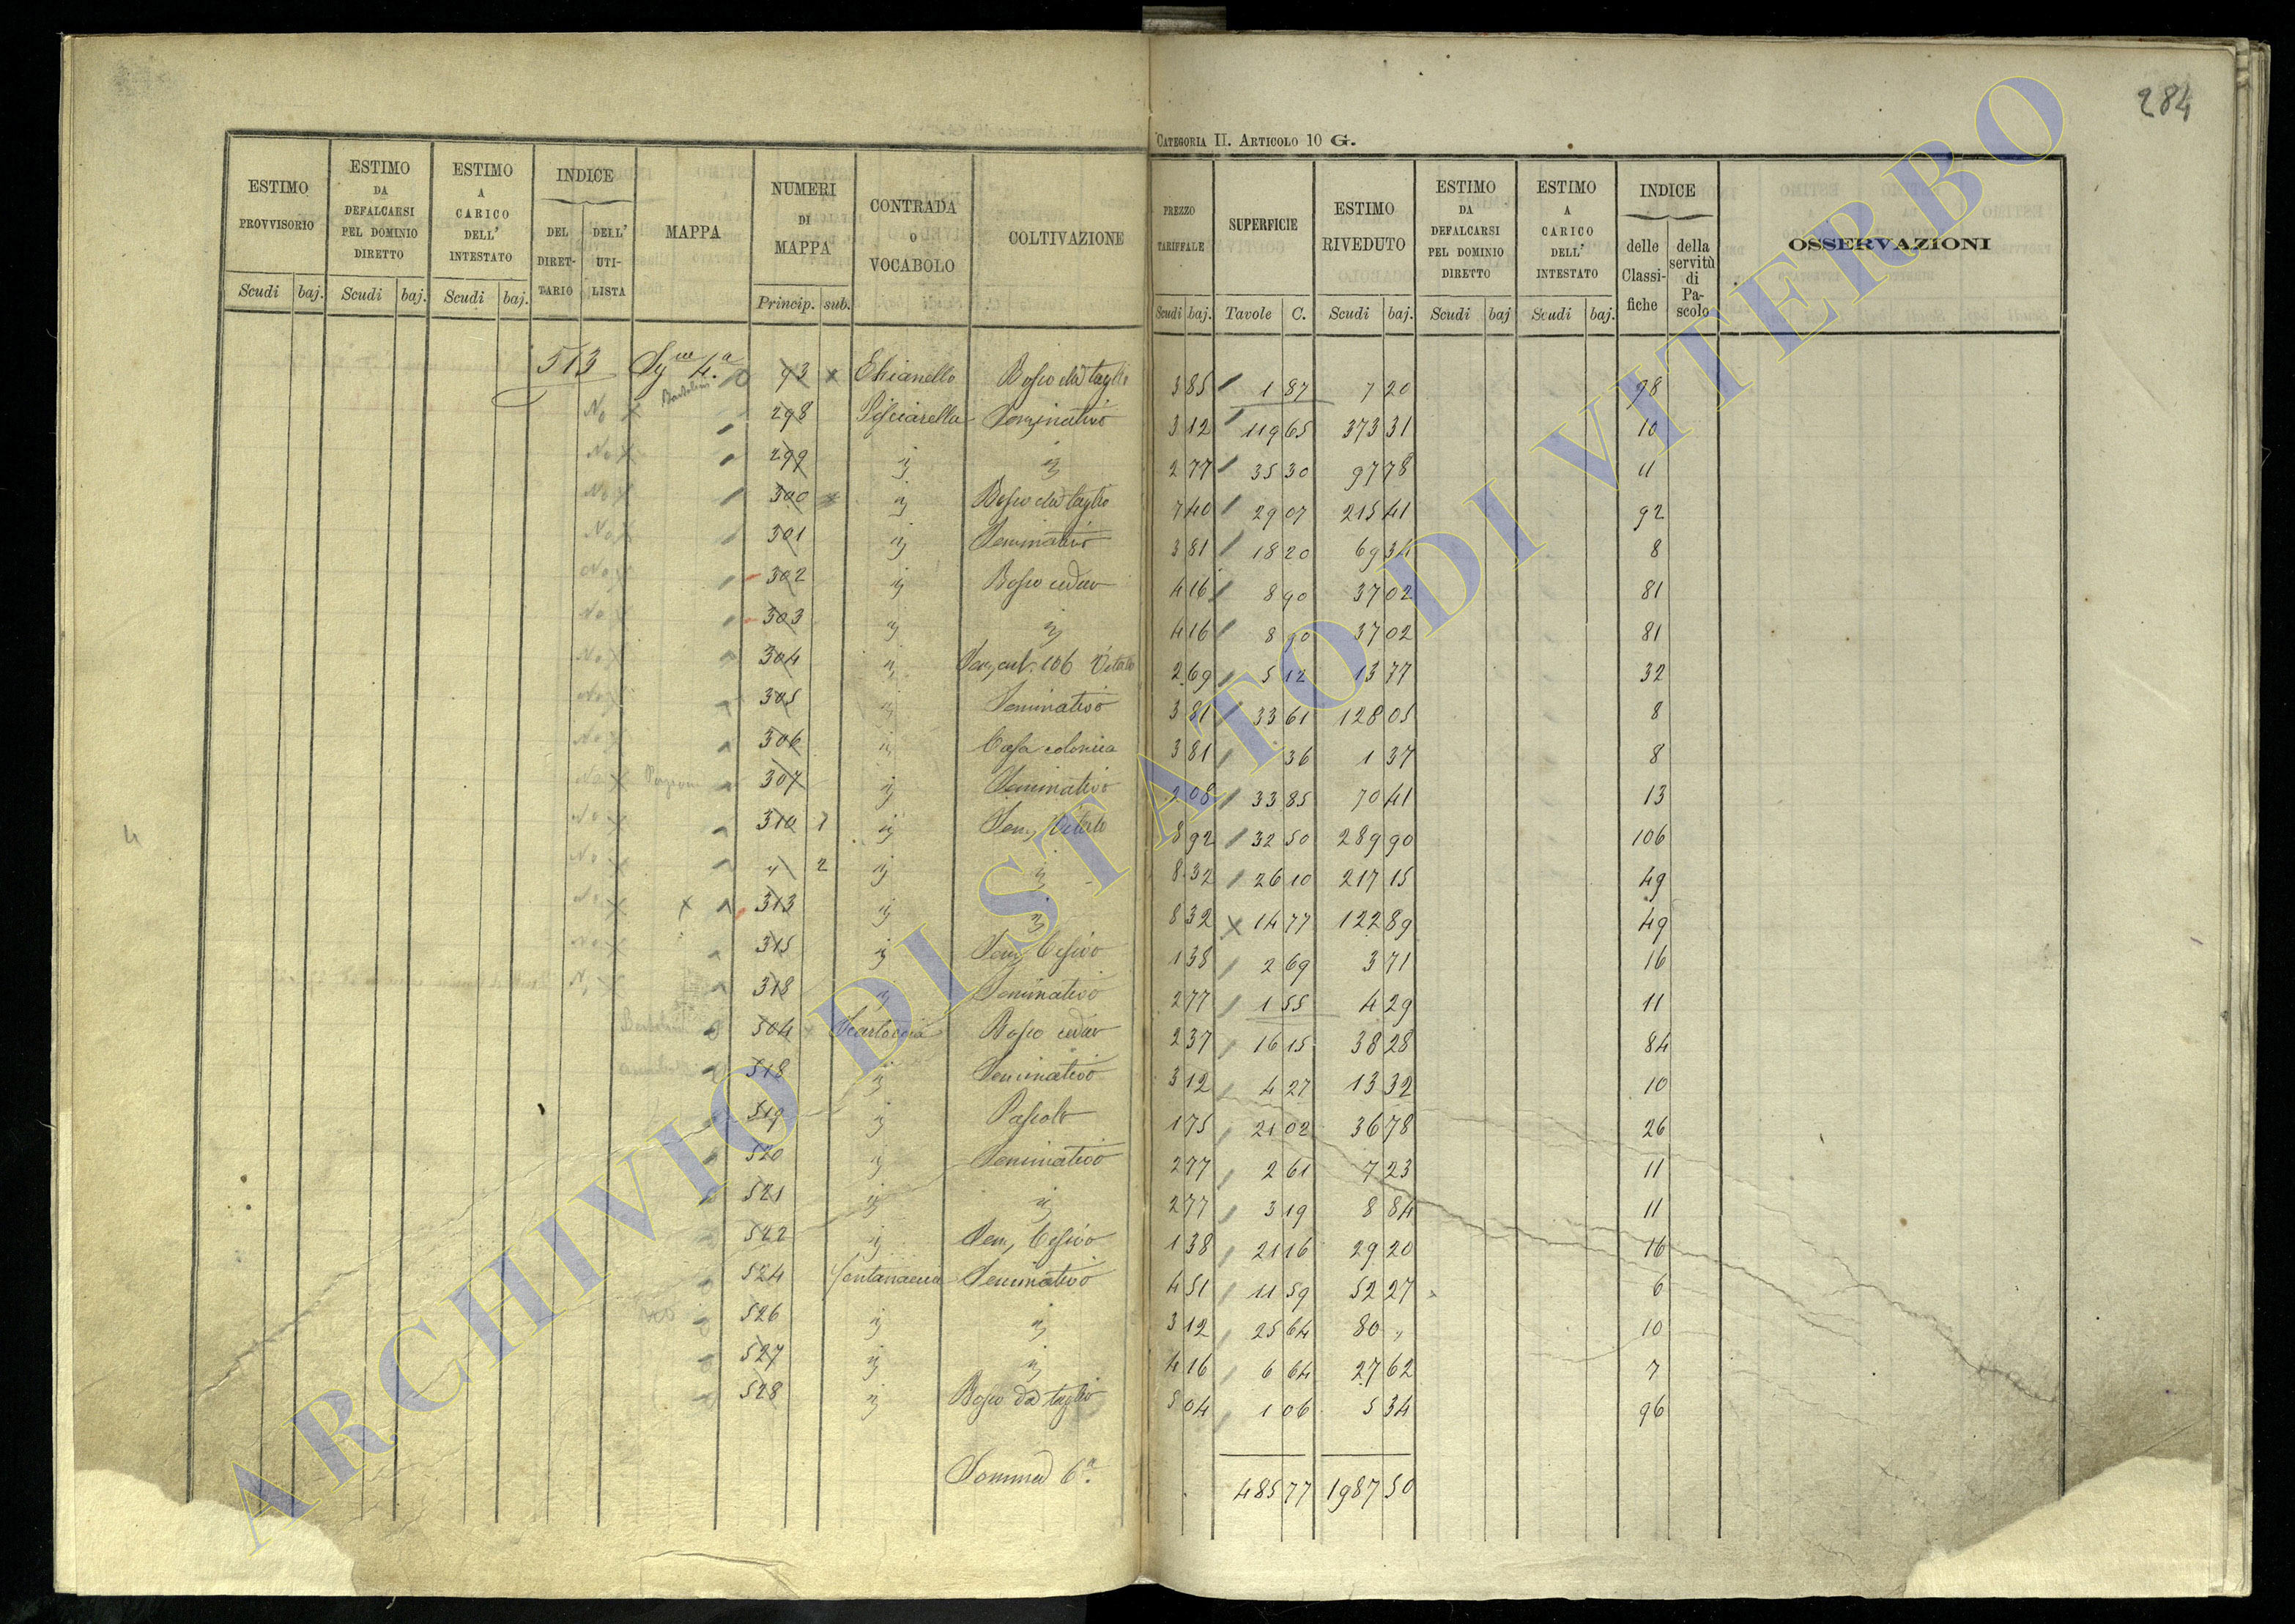 284
CATEGORIA II. ARTICOLO 10 G.
ESTIMO PROVVISORIO Scudi baj.
ESTIMO DA DEFALCARSI PEL DOMINIO DIRETTO Scudi baj.
ESTIMO A CARICO DELL' INTESTATO Scudi baj.
INDICE DEL DIRETTARIO DELL' UTILISTA
MAPPA
NUMERI DI MAPPA Princip. sub.
CONTRADA O VOCABOLO
COLTIVAZIONE
PREZZO TARIFFALE Scudi baj.
SUPERFICIE Tavole C.
ESTIMO RIVEDUTO Scudi baj.
ESTIMO DA DEFALCARSI PEL DOMINIO DIRETTO Scudi baj
ESTIMO A CARICO DELL' INTESTATO Scudi baj.
INDICE delle Classifiche della servitù di Pascolo
OSSERVAZIONI
513 93 Bosco da taglio 3 85 1 87 7 20 98
No 298 Seminativo 3 12 119 65 373 31 10
No 299 " " 2 77 35 30 97 78 11
No 300 " Bosco da taglio 7 40 29 07 215 41 92
No 301 " Seminativo 3 81 18 20 69 34 8
No 302 " Bosco ceduo 4 16 8 90 37 02 81
No 303 " " 4 16 8 90 37 02 81
No 304 " 2 69 5 12 13 77 32
No 305 " Seminativo 3 81 33 61 128 05 8
No 306 " Casa colonica 3 81 36 1 37 8
No 307 " Seminativo 2 08 33 85 70 41 13
No 310 1 " Sem, Vitato 8 92 32 50 289 90 106
No " 2 " " 8 32 26 10 217 15 49
No 313 " " 8 32 14 77 122 89 49
No 315 " Sem, Cesivo 1 38 2 69 3 71 16
N, 318 " Seminativo 2 77 1 55 4 29 11
504 Bosco ceduo 2 37 16 15 38 28 84
518 " Seminativo 3 12 4 27 13 32 10
519 " Pascolo 1 75 21 02 36 78 26
520 " Seminativo 2 77 2 61 7 23 11
521 " " 2 77 3 19 8 84 11
522 " Sem, Cesivo 1 38 21 16 29 20 16
524 Fontanaccia Seminativo 4 51 11 59 52 27 6
526 " " 3 12 25 64 80 " 10
527 " " 4 16 6 64 27 62 7
528 " Bosco da taglio 5 04 1 06 5 34 96
Somma 6.a 485 77 1987 50
ARCHIVIO DI STATO DI VITERBO